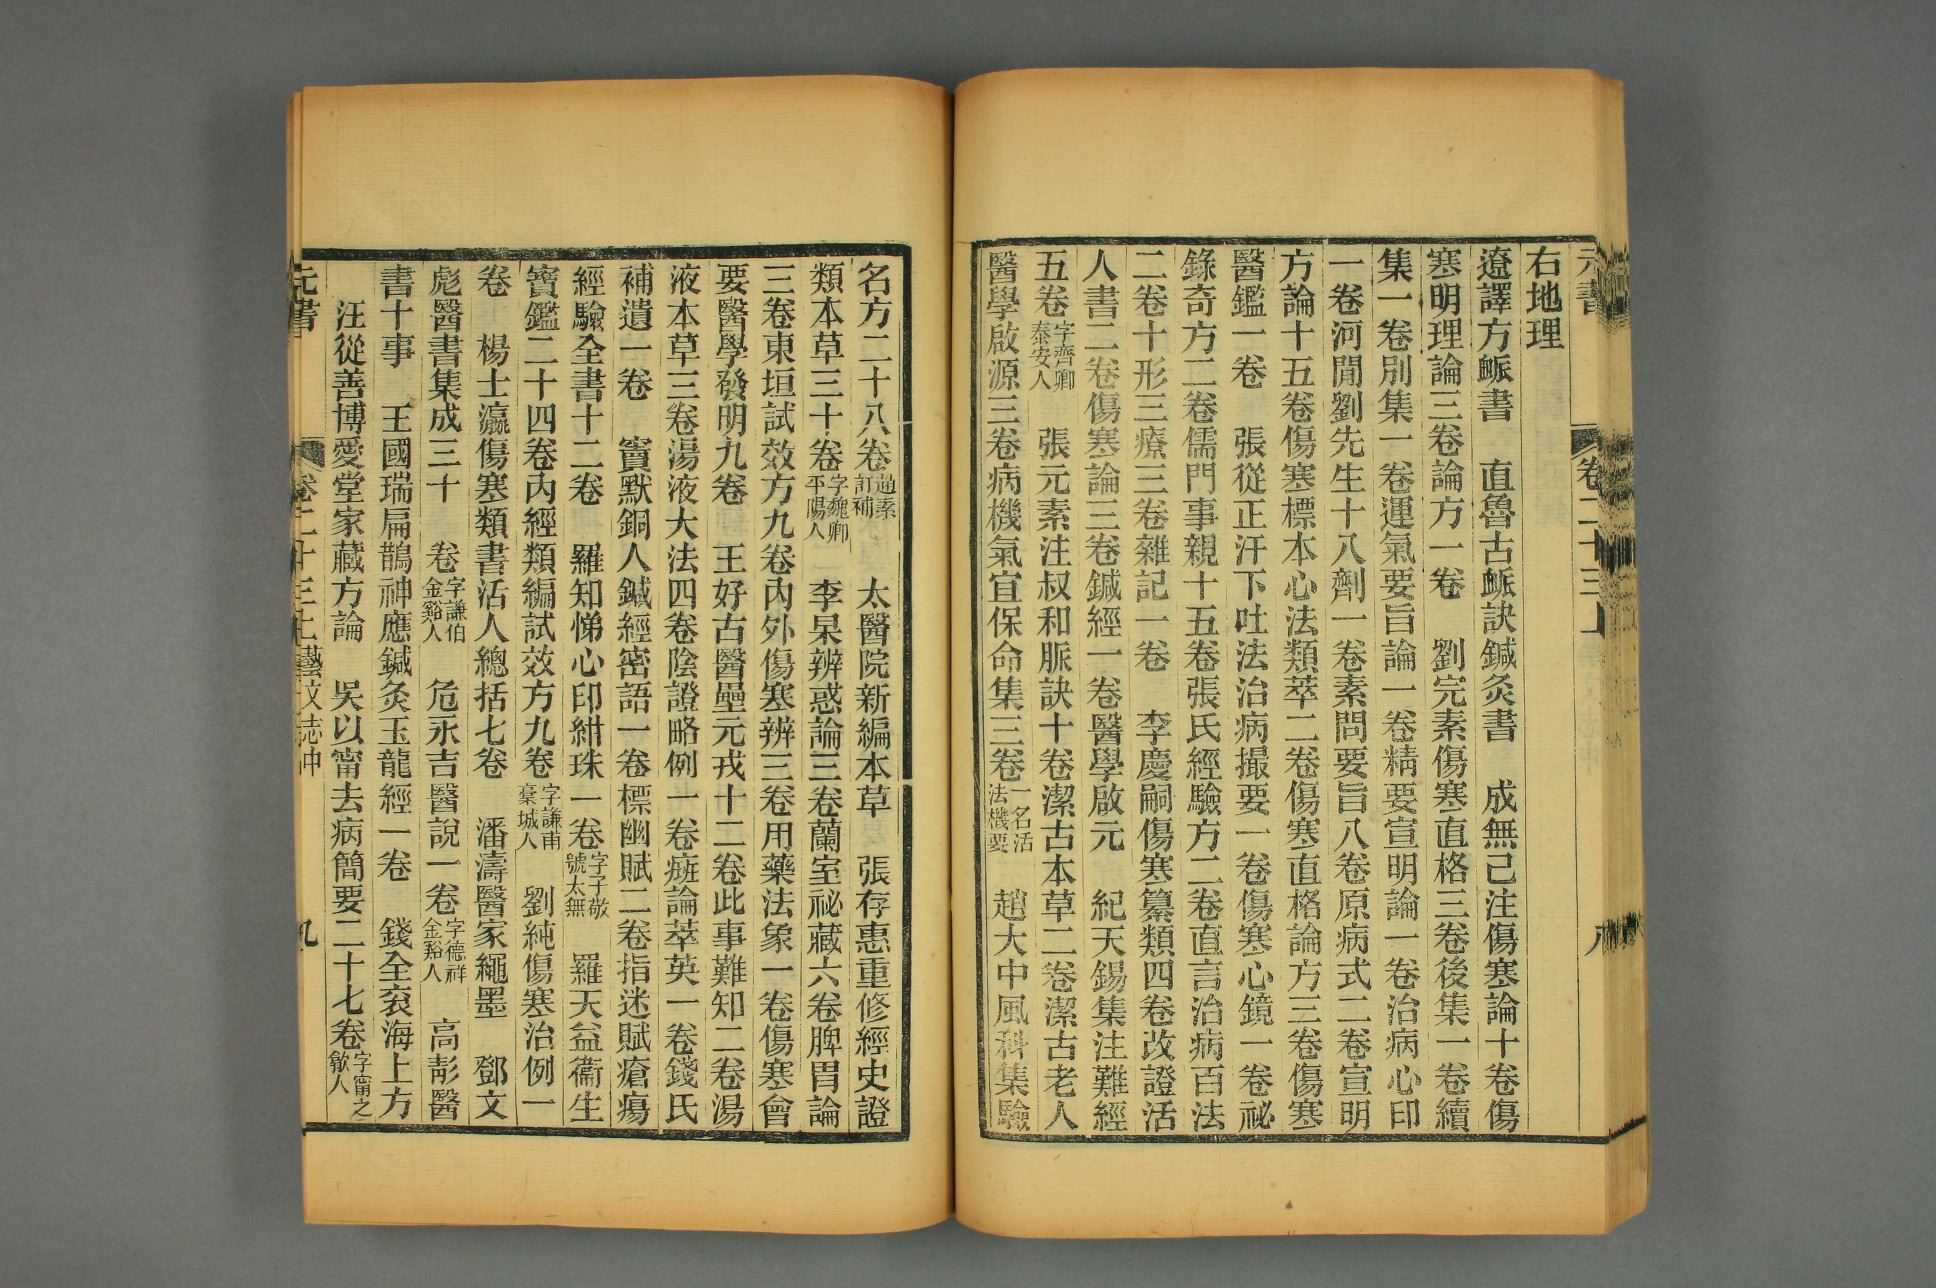 元書 卷二十三上 八
右地理
遼譯方䘑書 直魯古䘑訣鍼灸書 成無己注傷寒論十卷傷
寒明理論三卷論方一卷 劉完素傷寒直格三卷後集一卷續
集一卷別集一卷運氣要旨論一卷精要宣明論一卷治病心印
一卷河閒劉先生十八劑一卷素問要旨八卷原病式二卷宣明
方論十五卷傷寒標本心法類萃二卷傷寒直格論方三卷傷寒
醫鑑一卷 張從正汗下吐法治病撮要一卷傷寒心鏡一卷祕
錄奇方二卷儒門事親十五卷張氏經驗方二卷直言治病百法
二卷十形三療三卷雜記一卷 李慶嗣傷寒纂類四卷改證活
人書二卷傷寒論三卷鍼經一卷醫學啟元 紀天錫集注難經
五卷字齊卿泰安人 張元素注叔和脈訣十卷潔古本草二卷潔古老人
醫學啟源三卷病機氣宜保命集三卷一名活法機要 趙大中風科集驗
名方二十八卷趙素訂補 太醫院新編本草 張存惠重修經史證
類本草三十卷字魏卿平陽人 李杲辨惑論三卷蘭室祕藏六卷脾胃論
三卷東垣試效方九卷內外傷寒辨三卷用藥法象一卷傷寒會
要醫學發明九卷 王好古醫壘元戎十二卷此事難知二卷湯
液本草三卷湯液大法四卷陰證略例一卷癍論萃英一卷錢氏
補遺一卷 竇默銅人鍼經密語一卷標幽賦二卷指迷賦瘡瘍
經驗全書十二卷 羅知悌心印紺珠一卷字子敬號太無 羅天益衞生
寶鑑二十四卷內經類編試效方九卷字謙甫槀城人 劉純傷寒治例一
卷 楊士瀛傷寒類書活人總括七卷 潘濤醫家繩墨 鄧文
彪醫書集成三十 卷字謙伯金谿人 危永吉醫說一卷字德祥金谿人 高彭醫
書十事 王國瑞扁鵲神應鍼灸玉龍經一卷 錢全袞海上方
汪從善博愛堂家藏方論 吳以甯去病簡要二十七卷字甯之歙人
元書 卷二十三上藝文志冲 九